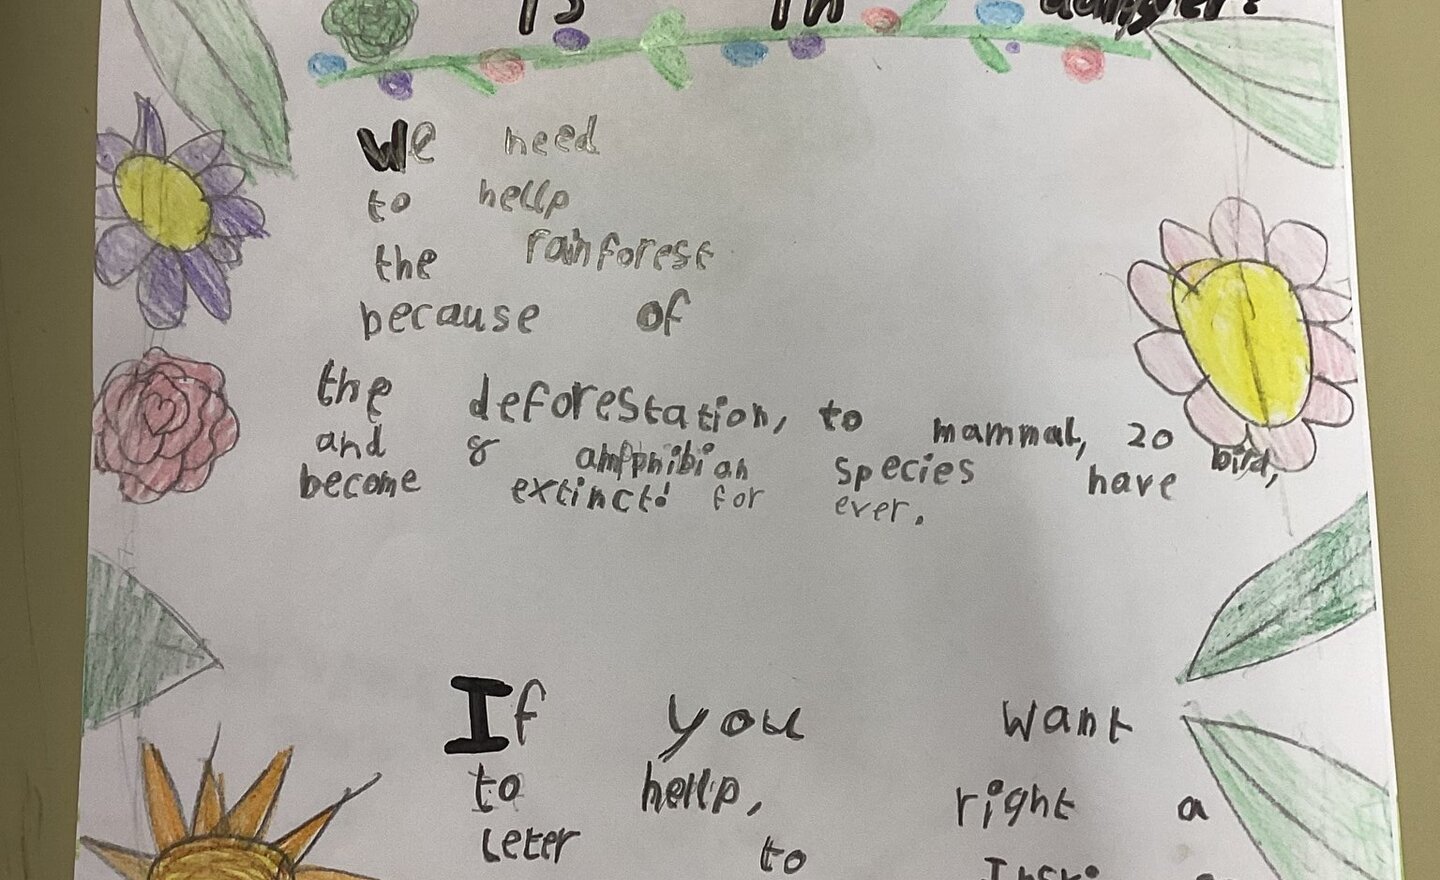 is in danger!
We need
to hellp
the rainforest
because of
the deforestation, to mammal, 20 bird,
and 8 amphibian species have
become extinct! for ever.
If you want
to hellp, right a
leter to